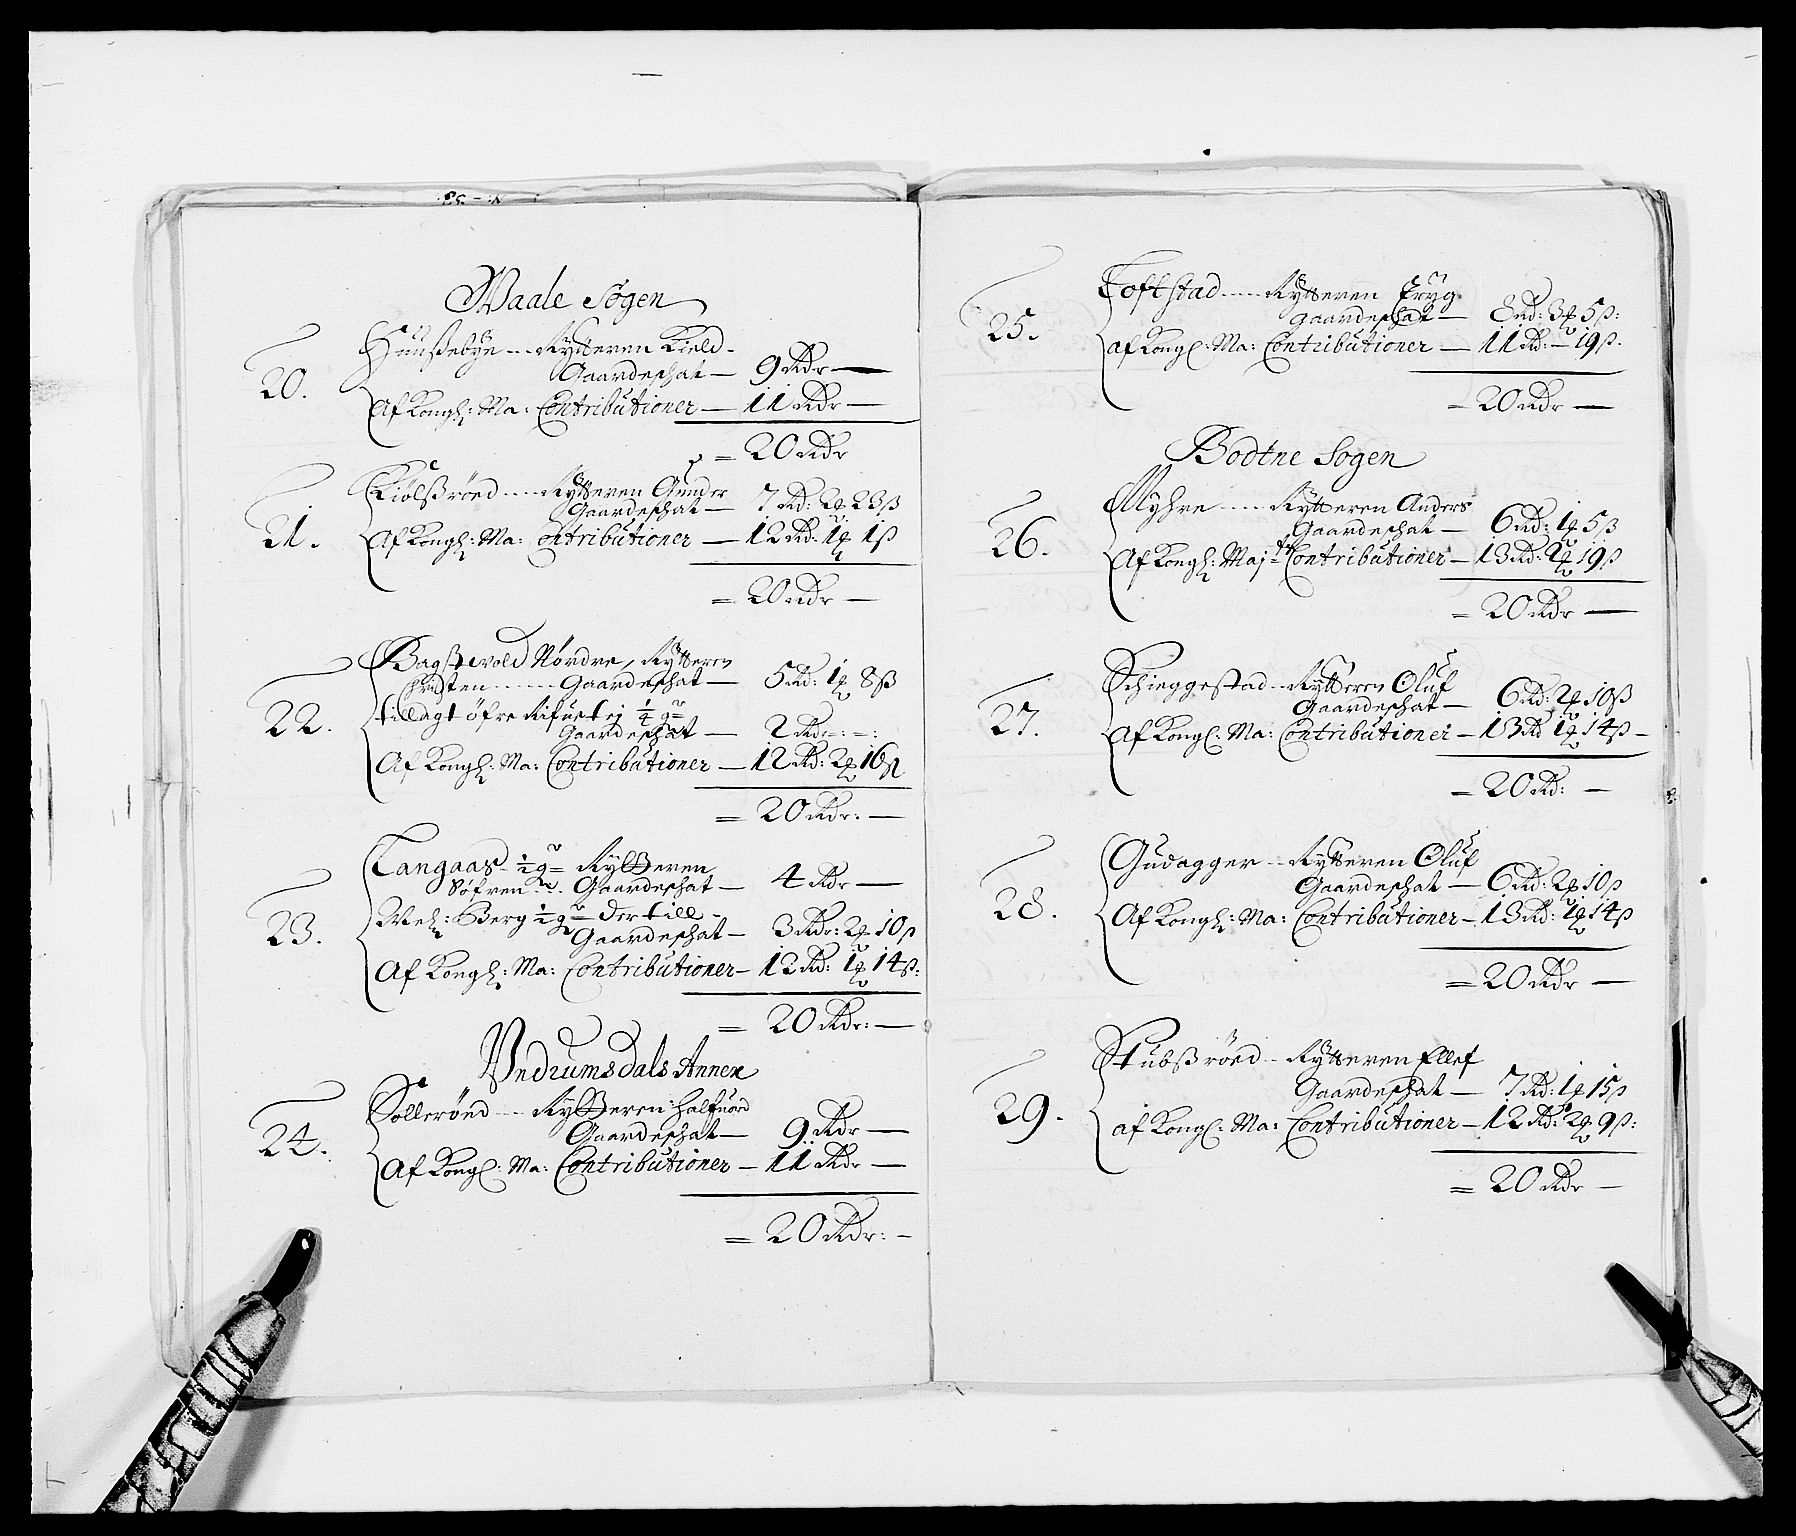 Waale Sogen
20.
Hunsßebÿe ---- Rÿtteren Kield -
Gaardeschat — 9 Rdr —
Af Kongl: Ma: Contributioner — 11 Rdr —
= 20 Rdr
21.
Kiölßröed ---- Rÿtteren Gunder
Gaardeschat — 7 Rd: 2 ₰ 23 ß
Af Kongl: Ma: Contributioner — 12 Rd: 1 ₰ 1 ß
= 20 Rdr —
22.
Bagßevold Nördre, Rÿtteren
Gaardeschat — 5 Rd: 1 ₰ 8 ß
tillagt öfre 1/4 g
Gaardeschat — 2 Rdr -:-:
Af Kongl: Ma: Contributioner — 12 Rd: 2 ₰ 16 ß
= 20 Rdr: —
23.
Langaas - 1/2 g Rÿtteren
Söfren --- Gaardeschat — 4 Rdr —
Berg 1/2 g der till -
Gaardeschat — 3 Rdr: 2 ₰ 10 ß
Af Kongl: Ma: Contributioner — 12 Rd: 1 ₰ 14 ß:
= 20 Rdr: —
Vndrumsdals Annex
24.
Solleröed ---- Rÿtteren Halfuord
Gaardeschat — 9 Rdr —
Af Kongl: Ma: Contributioner — 11 Rdr —
= 20 Rdr: —
25.
Toftstad ---- Rÿtteren
Gaardeschat — 8 rd: 3 ₰ 5 ß:
af Kongl: Ma: Contributioner — 11 Rd: — 19 ß.
= 20 Rdr —
Bodtne Sogen
26.
Myhre ---- Rÿtteren Anders
Gaardeschat — 6 Rd: 1 ₰ 5 ß
Af Kongl: Majts Contributioner — 13 Rd: 2 ₰ 19 ß
= 20 Rdr —
27.
Schieggestad -- Rÿtteren Oluf
Gaardeschat — 6 Rd: 2 ₰ 10 ß
af Kongl: Ma: Contributioner — 13 Rd 1 ₰ 14 ß —
= 20 Rd: —
28.
Gudagger -- Rÿtteren Oluf
Gaardeschat — 6 Rd: 2 ₰ 10 ß
Af Kongl: Ma: Contributioner — 13 Rd: 1 ₰ 14 ß
= 20 Rdr —
29.
Stubßröed -- Rÿtteren Ellef
Gaardeschat — 7 Rd: 1 ₰ 15 ß
af Kongl: Ma: Contributioner — 12 Rd: 2 ₰ 9 ß:
= 20 Rdr —